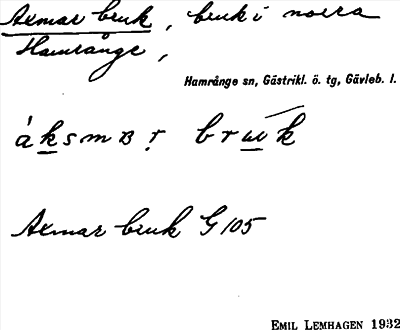 Axmar bruk, bruk i norra
Hamrånge,
Hamrånge sn, Gästrikl. ö. tg, Gävleb. l.
áksmʙr brɯk
Axmar bruk G 105
EMIL LEMHAGEN 1932